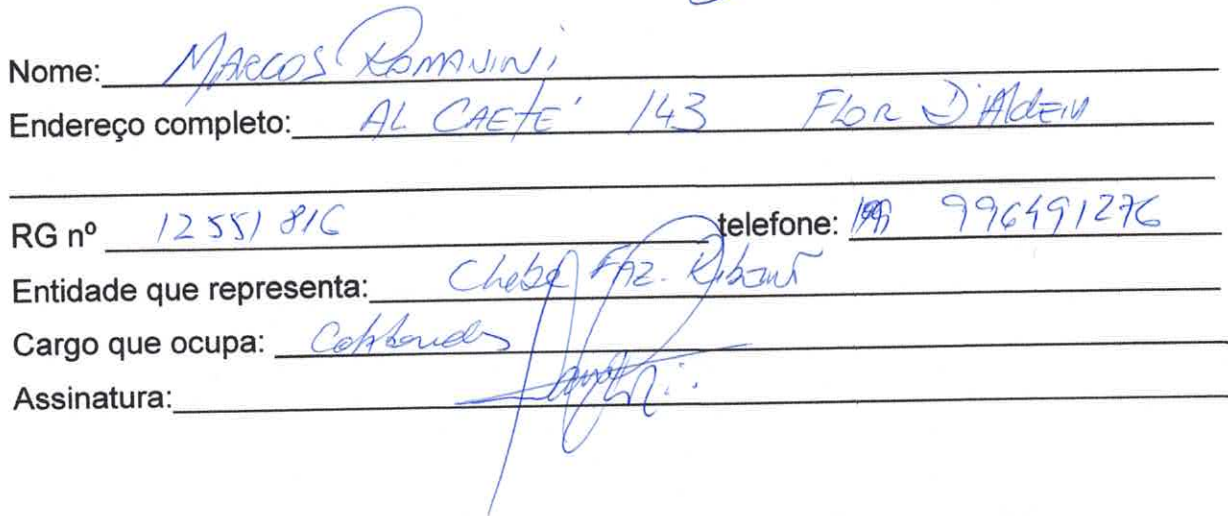 Nome: MARCOS ROMANINI
Endereço completo: AL CAETÉ 143 FLOR D'ALDEIA
RG nº 12551816 telefone: 996491276
Entidade que representa: FAZ.
Cargo que ocupa:
Assinatura: